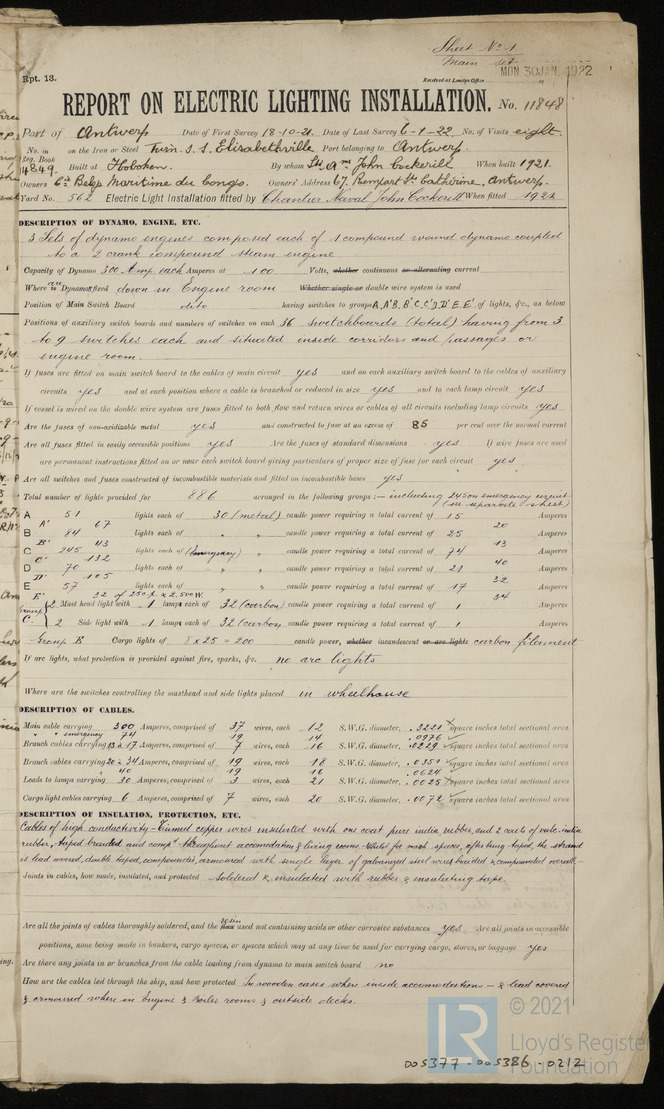 Sheet No 1
Main set
Rpt. 13.
Received at London Office
MON 30 JAN. 1922
REPORT ON ELECTRIC LIGHTING INSTALLATION. No. 11848
Port of Antwerp Date of First Survey 18-10-21. Date of Last Survey 6-1-22. No. of Visits eight
No. in Reg. Book on the Iron or Steel Twin. s.s. Elisabethville Port belonging to Antwerp.
4849. Built at Hoboken. By whom Sté Ame John Cockerill When built 1921.
Owners Cie Belge Maritime du Congo. Owners' Address 67, Rempart Ste Cathérine, Antwerp.
Yard No. 562 Electric Light Installation fitted by Chantier Naval John Cockerill When fitted 1921
DESCRIPTION OF DYNAMO, ENGINE, ETC.
3 Sets of dynamo engines composed each of 1 compound wound dynamo coupled
to a 2 crank compound steam engine
Capacity of Dynamo 300 Amp. each Amperes at 100 Volts, whether continuous or alternating current
Where is Dynamo fixed down in Engine room Whether single or double wire system is used
Position of Main Switch Board ditto having switches to groups A, A' B, B' C, C' D, D' E, E' of lights, &c., as below
Positions of auxiliary switch boards and numbers of switches on each 36 switchboards (total) having from 3
to 9 switches each and situated inside corridors and passages or
engine room.
If fuses are fitted on main switch board to the cables of main circuit yes and on each auxiliary switch board to the cables of auxiliary
circuits yes and at each position where a cable is branched or reduced in size yes and to each lamp circuit yes
If vessel is wired on the double wire system are fuses fitted to both flow and return wires or cables of all circuits including lamp circuits yes
Are the fuses of non-oxidizable metal yes and constructed to fuse at an excess of 85 per cent over the normal current
Are all fuses fitted in easily accessible positions yes Are the fuses of standard dimensions yes If wire fuses are used
are permanent instructions fitted on or near each switch board giving particulars of proper size of fuse for each circuit yes
Are all switches and fuses constructed of incombustible materials and fitted on incombustible bases yes
Total number of lights provided for 886 arranged in the following groups :— including 245 on emergency circuit
(see separate sheet)
A 51 lights each of 30 (metal) candle power requiring a total current of 15 Amperes
A' 67 20
B 84 lights each of " " candle power requiring a total current of 25 Amperes
B' 43 13
C 245 lights each of (Emergency) " candle power requiring a total current of 74 Amperes
C' 132 40
D 70 lights each of " " candle power requiring a total current of 21 Amperes
D' 105 32
E 57 lights each of " " candle power requiring a total current of 17 Amperes
E' 32 of 250 p. x 2.500 W. 34
Group C. 2 Mast head light with 1 lamps each of 32 (carbon) candle power requiring a total current of 1 Amperes
2 Side light with 1 lamps each of 32 (carbon) candle power requiring a total current of 1 Amperes
Group E Cargo lights of 8 x 25 = 200 candle power, whether incandescent or arc lights carbon filament
If arc lights, what protection is provided against fire, sparks, &c. no arc lights
Where are the switches controlling the masthead and side lights placed in wheelhouse
DESCRIPTION OF CABLES.
Main cable carrying 300 Amperes, comprised of 37 wires, each 12 S.W.G. diameter, .3221 square inches total sectional area
" " emergency 74 19 14 .0976
Branch cables carrying 13 à 17 Amperes, comprised of 7 wires, each 16 S.W.G. diameter, .0229 square inches total sectional area
Branch cables carrying 20 à 34 Amperes, comprised of 19 wires, each 18 S.W.G. diameter, .0351 square inches total sectional area
" 40 19 16 .0624
Leads to lamps carrying 30 Amperes, comprised of 3 wires, each 21 S.W.G. diameter, .0025 square inches total sectional area
Cargo light cables carrying 6 Amperes, comprised of 7 wires, each 20 S.W.G. diameter, .0072 square inches total sectional area
DESCRIPTION OF INSULATION, PROTECTION, ETC.
Cables of high conductivity - Tinned copper wires insulated with one coat pure india rubber, and 2 coats of vulc. india
rubber, taped braided and compd throughout accomodation & living rooms - Whilst for mach. spaces, after being taped, the strand
is lead covered, double taped, compounded, armoured with single layer of galvanized steel wires braided & compounded overall -
Joints in cables, how made, insulated, and protected soldered & insulated with rubber & insulating tape
Are all the joints of cables thoroughly soldered, and the resin used not containing acids or other corrosive substances yes Are all joints in accessible
positions, none being made in bunkers, cargo spaces, or spaces which may at any time be used for carrying cargo, stores, or baggage yes
Are there any joints in or branches from the cable leading from dynamo to main switch board no
How are the cables led through the ship, and how protected In wooden cases where inside accomodations - & lead covered
& armoured where in Engine & Boiler rooms & outside decks.
© 2021
Lloyd's Register
Foundation
LR
005377-005386-0212